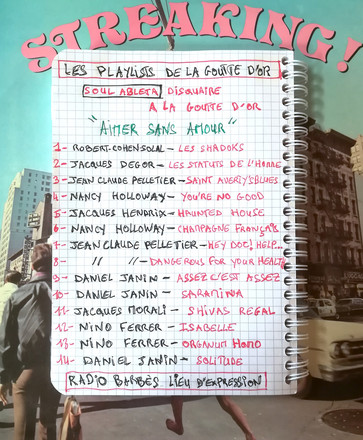 STREAKING!
LES PLAYLISTS DE LA GOUTTE D'OR
SOUL ABLETA DISQUAIRE
A LA GOUTTE D'OR
"AIMER SANS AMOUR"
1- ROBERT. COHEN SOLAL - LES SHADOKS
2- JACQUES DEGOR - LES STATUTS DE L'HOMME
3- JEAN CLAUDE PELLETIER - SAINT AVERTY'S BLUES
4- NANCY HOLLOWAY - YOU'RE NO GOOD
5- JACQUES HENDRIX - HAUNTED HOUSE
6- NANCY HOLLOWAY - CHAMPAGNE FRANÇAIS
7- JEAN CLAUDE PELLETIER - HEY DOC! HELP...
8- // // - DANGEROUS FOR YOUR HEALTH
9- DANIEL JANIN - ASSEZ C'EST ASSEZ
10- DANIEL JANIN - SARAMINA
11- JACQUES MORALI - SHIVAS REGAL
12- NINO FERRER - ISABELLE
13- NINO FERRER - ORGANUM HOMO
14- DANIEL JANIN - SOLITUDE
RADIO BARBÈS LIEU D'EXPRESSION